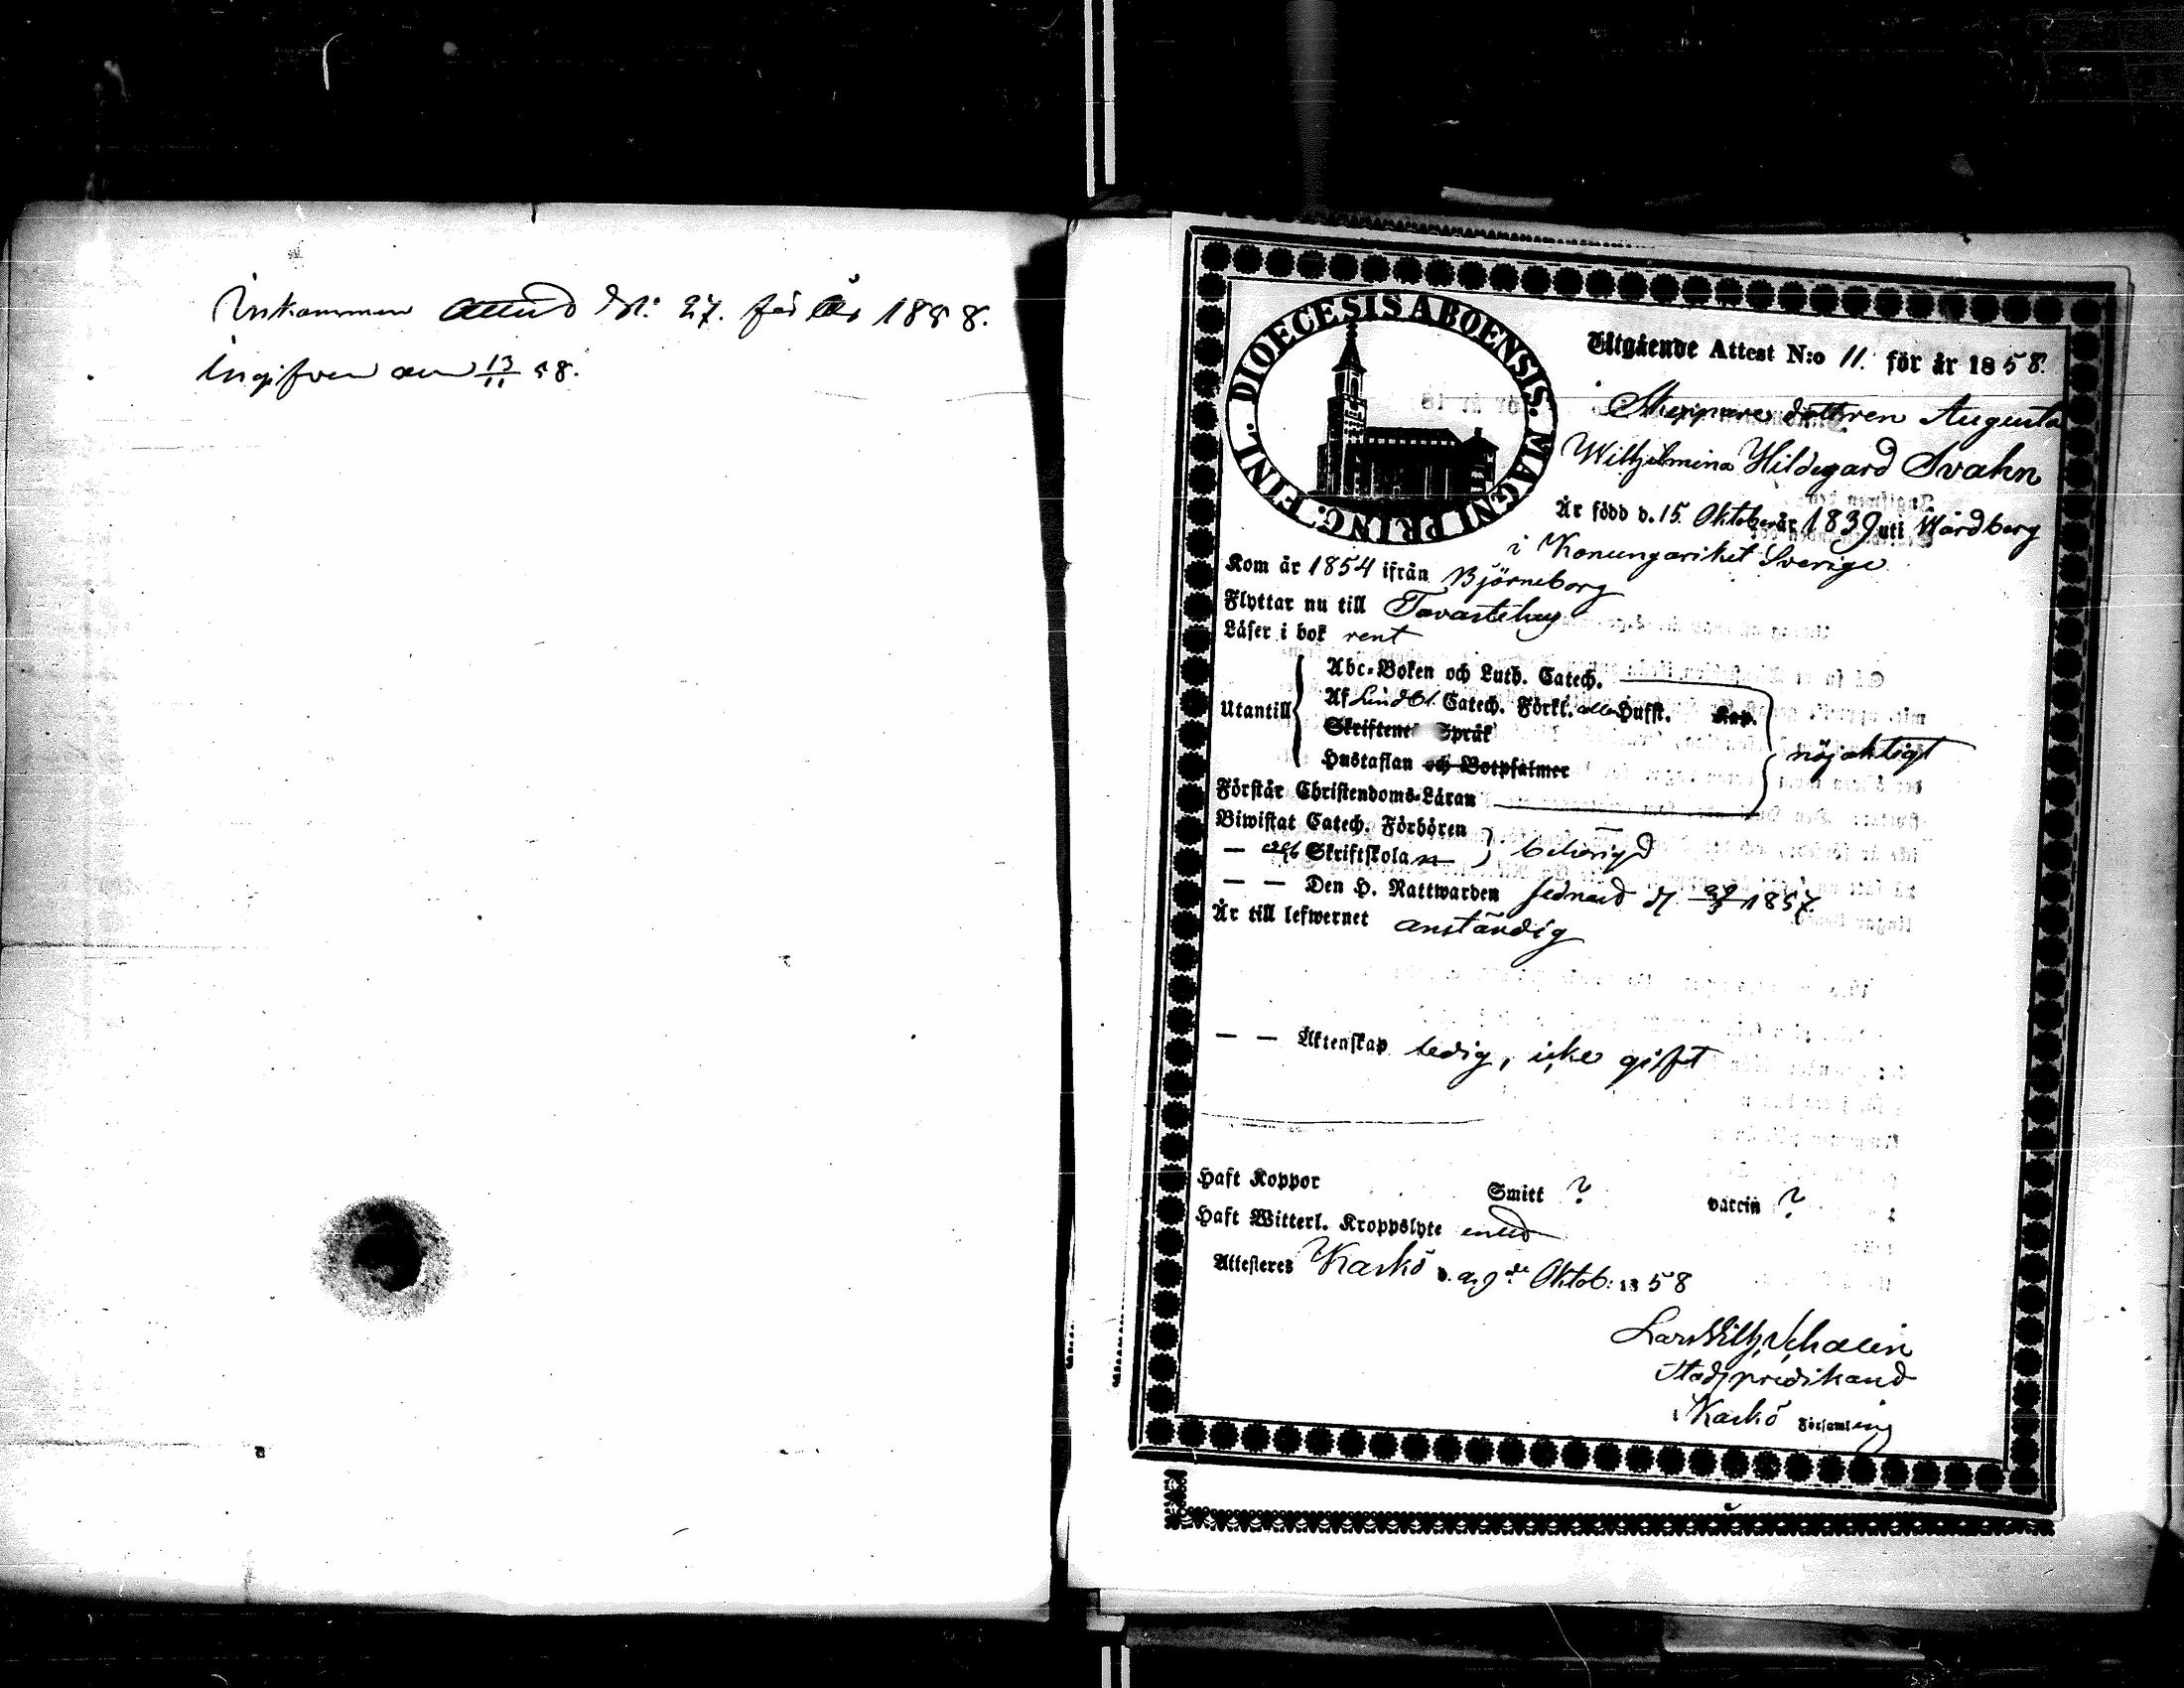 Inkommen attest N: 27. för år 1858.
Ingifven den 13/11 58.
DIOECESIS ABOENSIS. MAGNI PRINC. FINL.
Utgående Attest N:o 11. för år 1858.
Skeppare dottren Augusta
Wilhelmina Hildegard Svahn
Är född d. 15. Oktober år 1839 uti Wardberg
i Konungariket Sverige
Kom år 1854 ifrån Björneborg
Flyttar nu till Tavastehus
Läser i bok rent
Utantill
Abc-Boken och Luth. Catech.
Af Lindbl. Catech. Förkl. alla Hufst. Kap.
Skriftenes Språk
Hustaflan och Botpsalmer
nöjaktigt
Förstår Christendoms-Läran
Biwistat Catech. Förhören
— och Skriftskolan behörigt
— — Den H. Nattwarden sednast d. 1857.
Är till lefwernet anständig
— — Äktenskap ledig, icke gift
Haft Koppor Smitt ? vaccin ?
Haft Witterl. Kroppslyte intet
Attesteres Kaskö d. 29de Oktob: 1858
Lars Wilh. Schalin
Stadspredikant
i Kaskö Församling